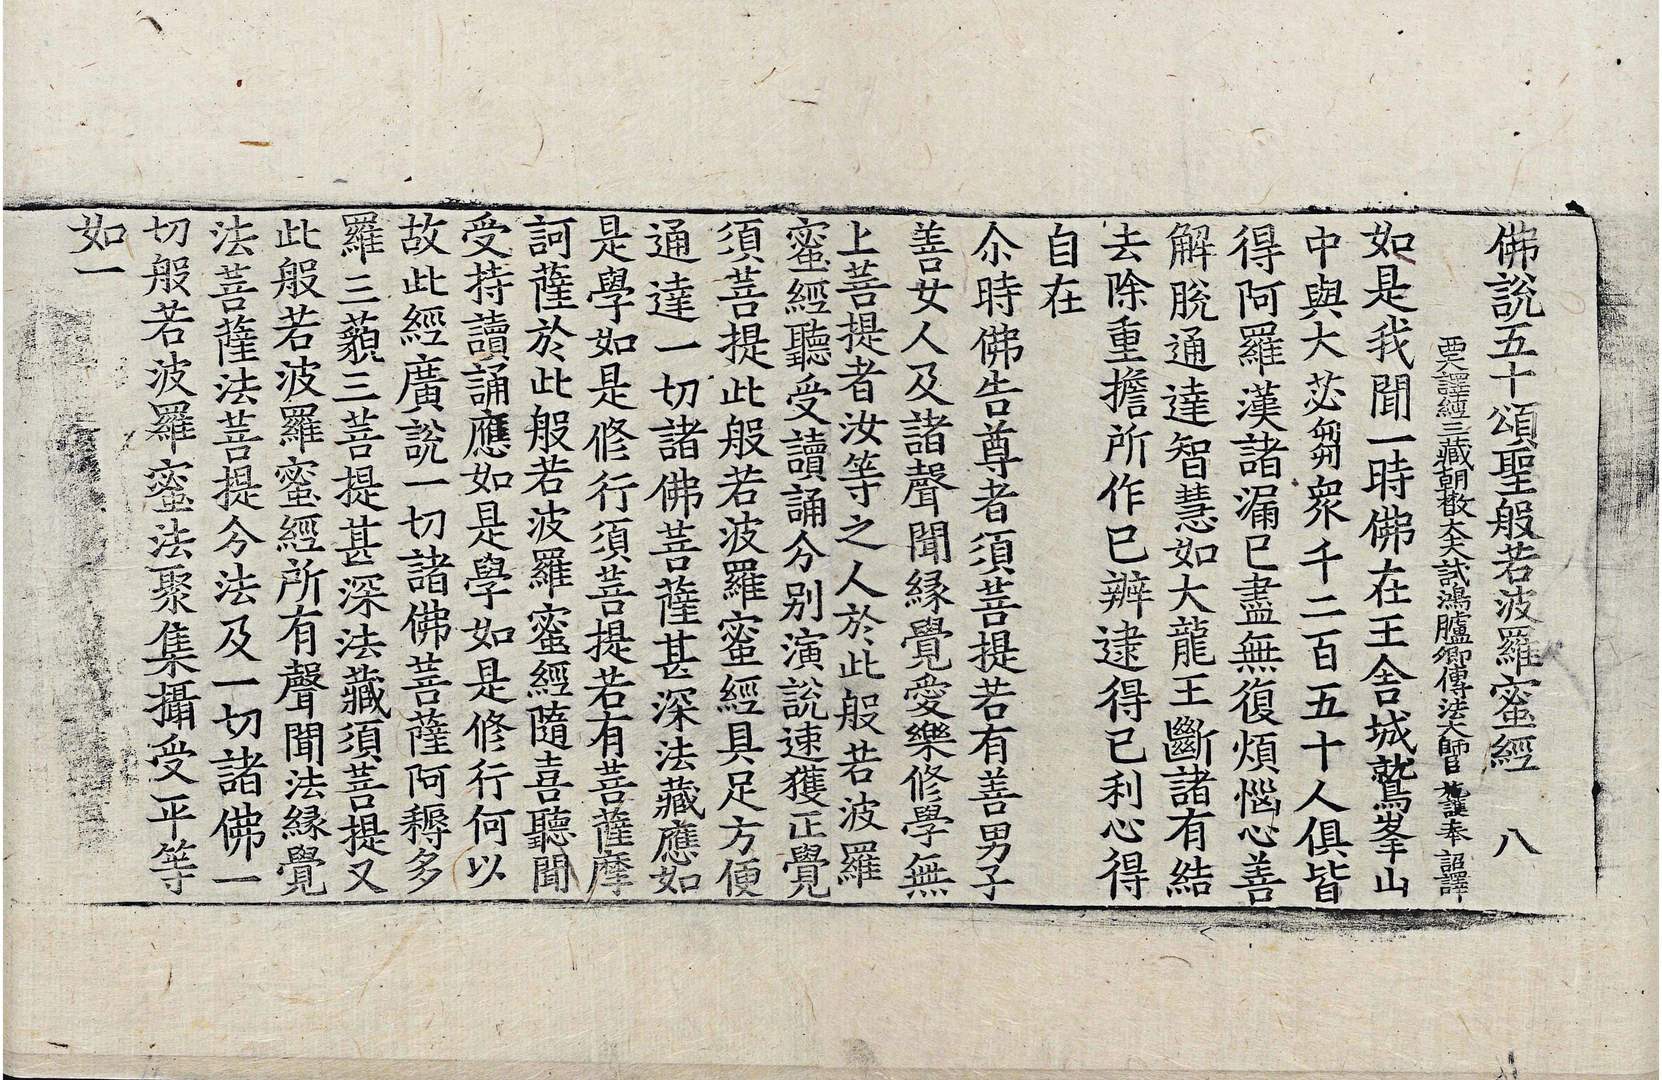 佛說五十頌聖般若波羅蜜經 八
西天譯經三藏朝散大夫試鴻臚卿傳法大師臣施護奉 詔譯
如是我聞一時佛在王舍城鷲峯山
中與大苾蒭衆千二百五十人俱皆
得阿羅漢諸漏已盡無復煩惱心善
解脫通達智慧如大龍王斷諸有結
去除重擔所作已辦逮得已利心得
自在
尒時佛告尊者須菩提若有善男子
善女人及諸聲聞緣覺愛樂修學無
上菩提者汝等之人於此般若波羅
蜜經聽受讀誦分別演說速獲正覺
須菩提此般若波羅蜜經具足方便
通達一切諸佛菩薩甚深法藏應如
是學如是修行須菩提若有菩薩摩
訶薩於此般若波羅蜜經隨喜聽聞
受持讀誦應如是學如是修行何以
故此經廣說一切諸佛菩薩阿耨多
羅三藐三菩提甚深法藏須菩提又
此般若波羅蜜經所有聲聞法緣覺
法菩薩法菩提分法及一切諸佛一
切般若波羅蜜法聚集攝受平等
如一